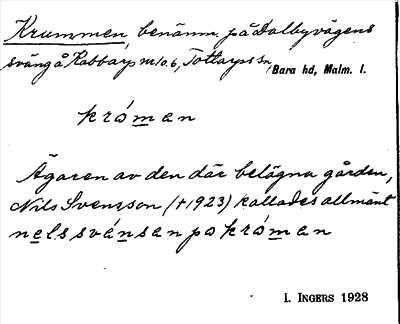 Krummen, benämn. på Dalbyvägens
sväng å Rabbarp m/06, Tottarps sn, Bara hd, Malm. l.
króman
Ägaren av den där belägna gården,
Nils Svensson (†1923) kallades allmänt
nels svénsan po króman
I. INGERS 1928